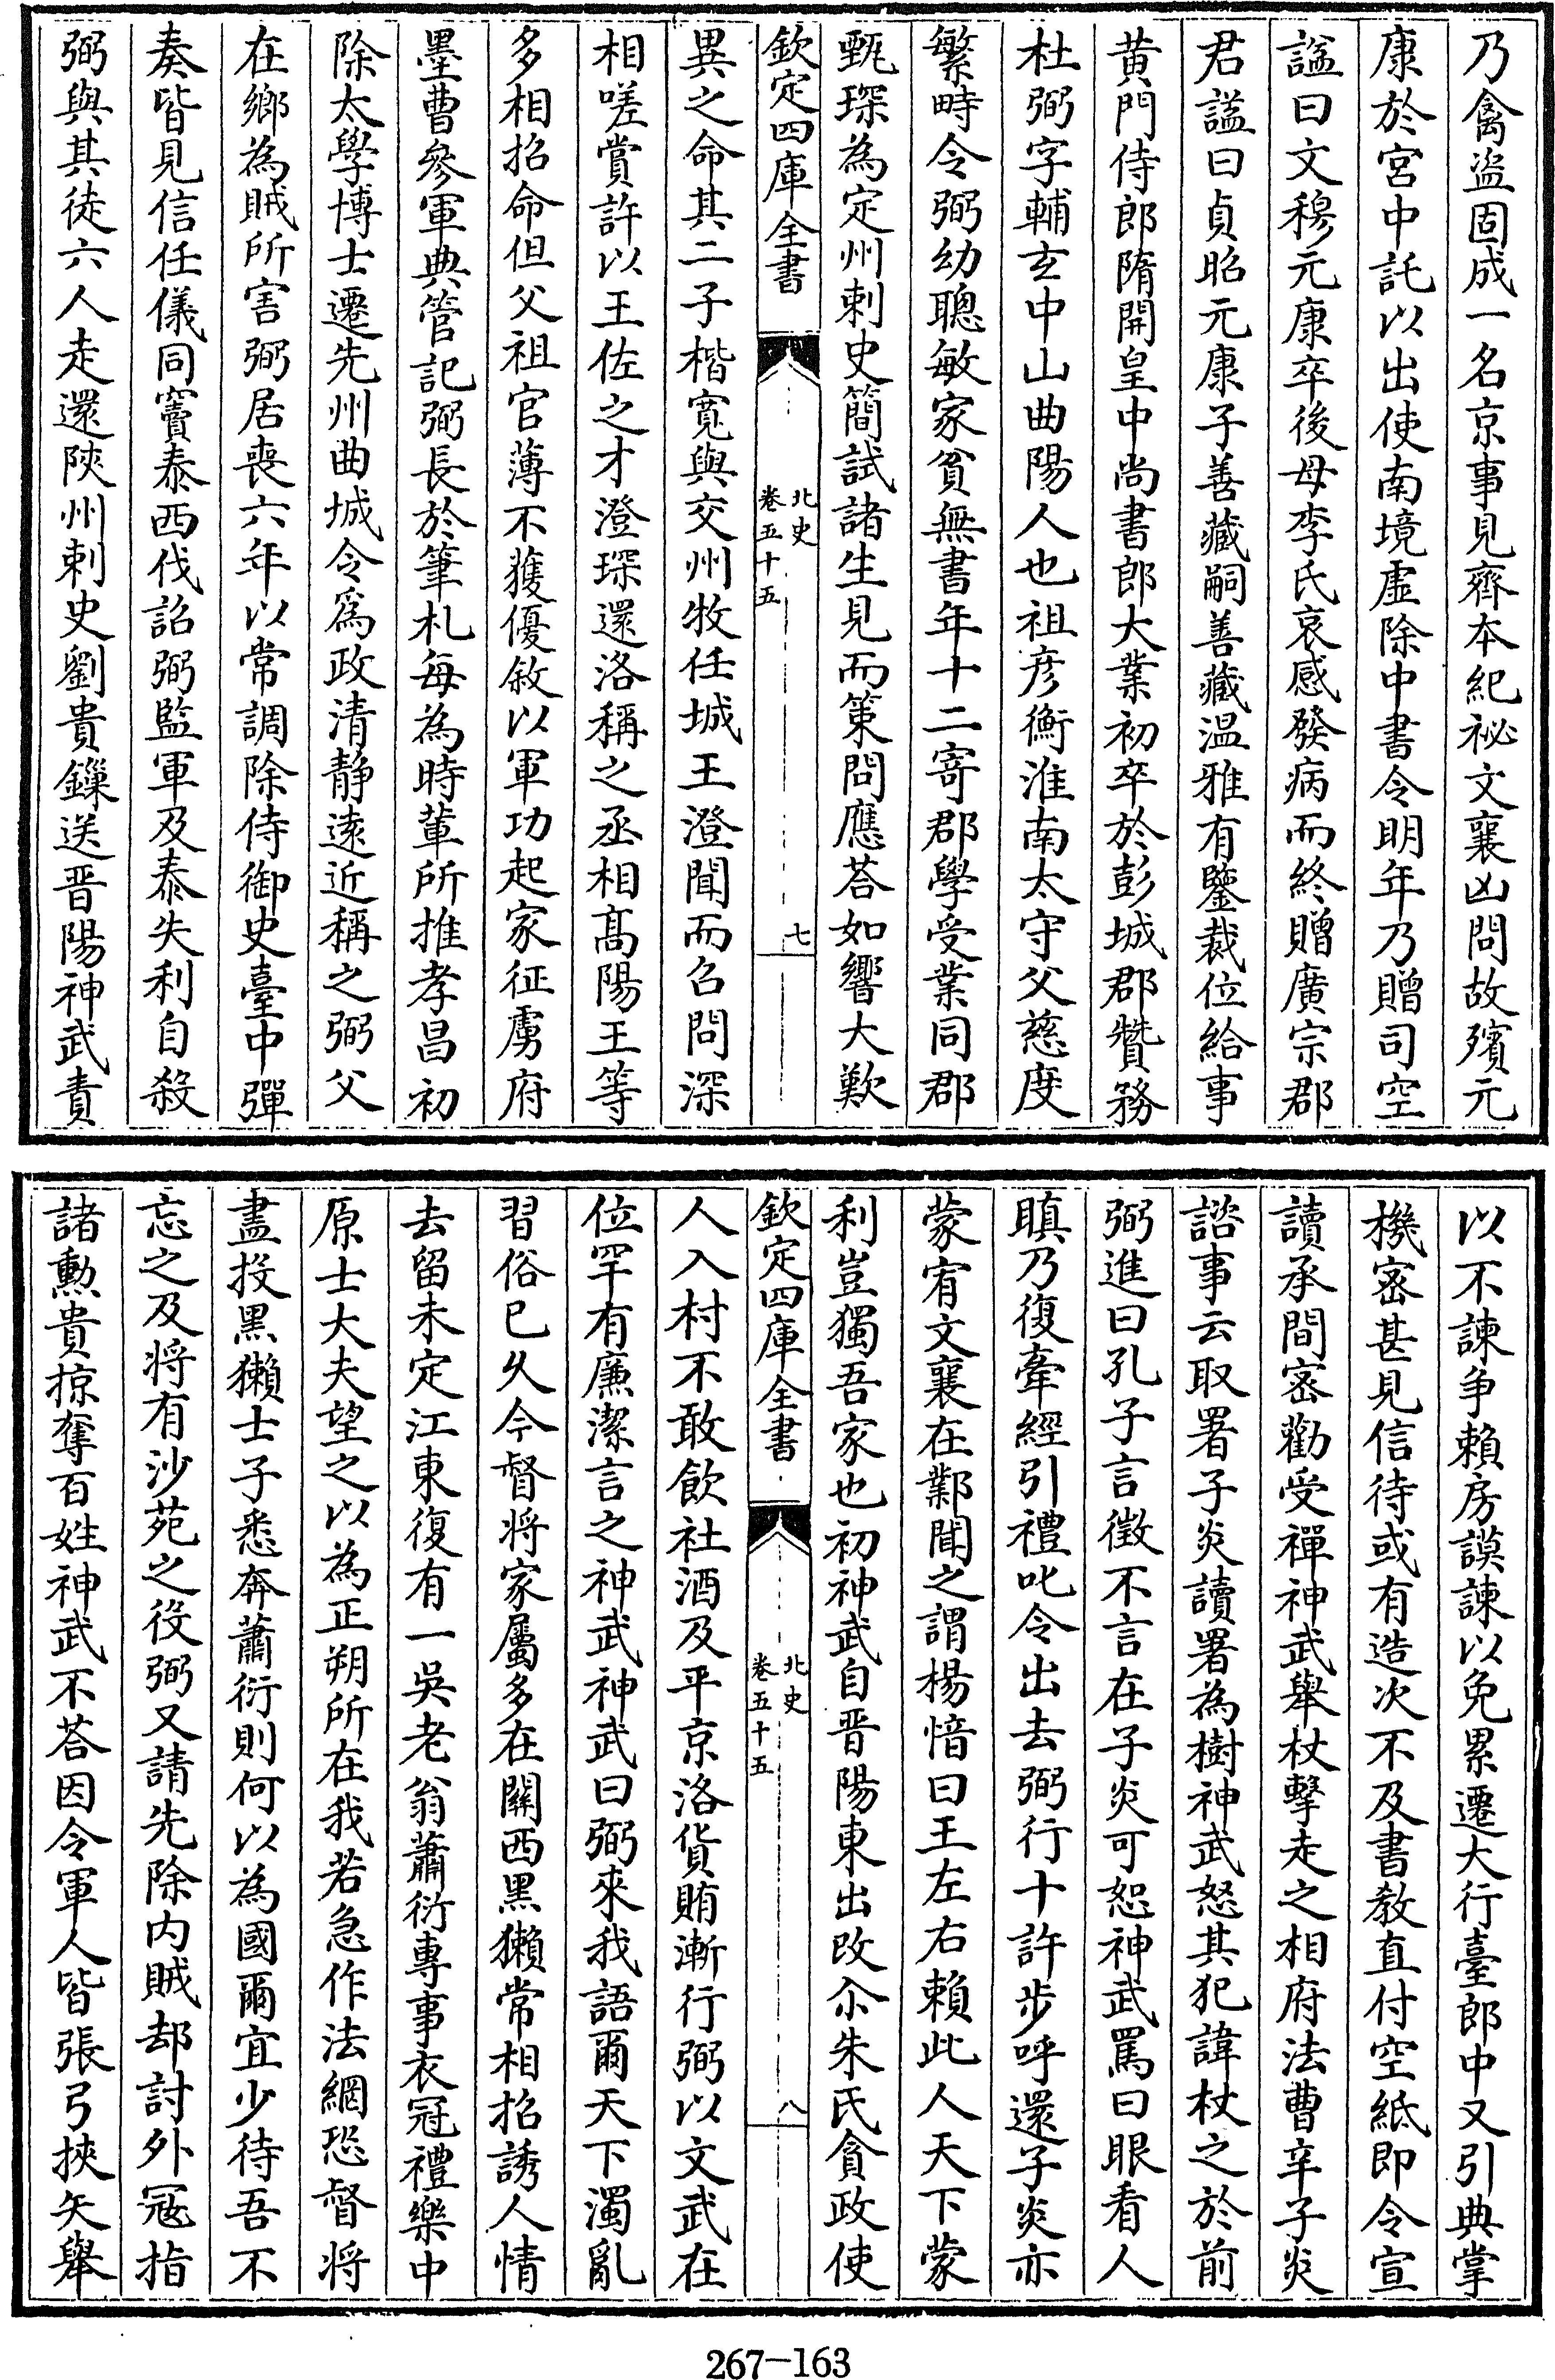 乃禽盗固成一名京事見齊本紀祕文襄凶問故殯元
康於宮中託以出使南境虛除中書令明年乃贈司空
諡曰文穆元康卒後母李氏哀感發病而終贈廣宗郡
君諡曰貞昭元康子善藏嗣善藏温雅有鑒裁位給事
黄門侍郎隋開皇中尚書郎大業初卒於彭城郡贊務
杜弼字輔玄中山曲陽人也祖彦衡淮南太守父慈度
繁畤令弼幼聰敏家貧無書年十二寄郡學受業同郡
甄琛為定州刺史簡試諸生見而策問應荅如響大歎
欽定四庫全書
北史
卷五十五
七
異之命其二子楷寬與交州牧任城王澄聞而召問深
相嗟賞許以王佐之才澄琛還洛稱之丞相髙陽王等
多相招命但父祖官薄不獲優敘以軍功起家征虜府
墨曹參軍典管記弼長於筆札每為時輩所推孝昌初
除太學博士遷先州曲城令爲政清静逺近稱之弼父
在鄉為賊所害弼居喪六年以常調除侍御史臺中彈
奏皆見信任儀同竇泰西伐詔弼監軍及泰失利自殺
弼與其徒六人走還陝州刺史劉貴鏁送晋陽神武責
以不諫争賴房謨諫以免累遷大行臺郎中又引典掌
機密甚見信待或有造次不及書教直付空紙即令宣
讀承間密勸受禪神武舉杖擊走之相府法曹辛子炎
諮事云取署子炎讀署為樹神武怒其犯諱杖之於前
弼進曰孔子言徵不言在子炎可恕神武罵曰眼看人
瞋乃復牽經引禮叱令出去弼行十許步呼還子炎亦
蒙宥文襄在鄴聞之謂楊愔曰王左右賴此人天下蒙
利豈獨吾家也初神武自晋陽東出改尒朱氏貪政使
欽定四庫全書
北史
卷五十五
八
人入村不敢飲社酒及平京洛貨賄漸行弼以文武在
位罕有廉潔言之神武神武曰弼來我語爾天下濁亂
習俗已久今督將家屬多在關西黒獺常相招誘人情
去留未定江東復有一吳老翁蕭衍專事衣冠禮樂中
原士大夫望之以為正朔所在我若急作法網恐督將
盡投黒獺士子悉奔蕭衍則何以為國爾宜少待吾不
忘之及將有沙苑之役弼又請先除内賊却討外寇指
諸勲貴掠奪百姓神武不荅因令軍人皆張弓挾矢舉
267-163